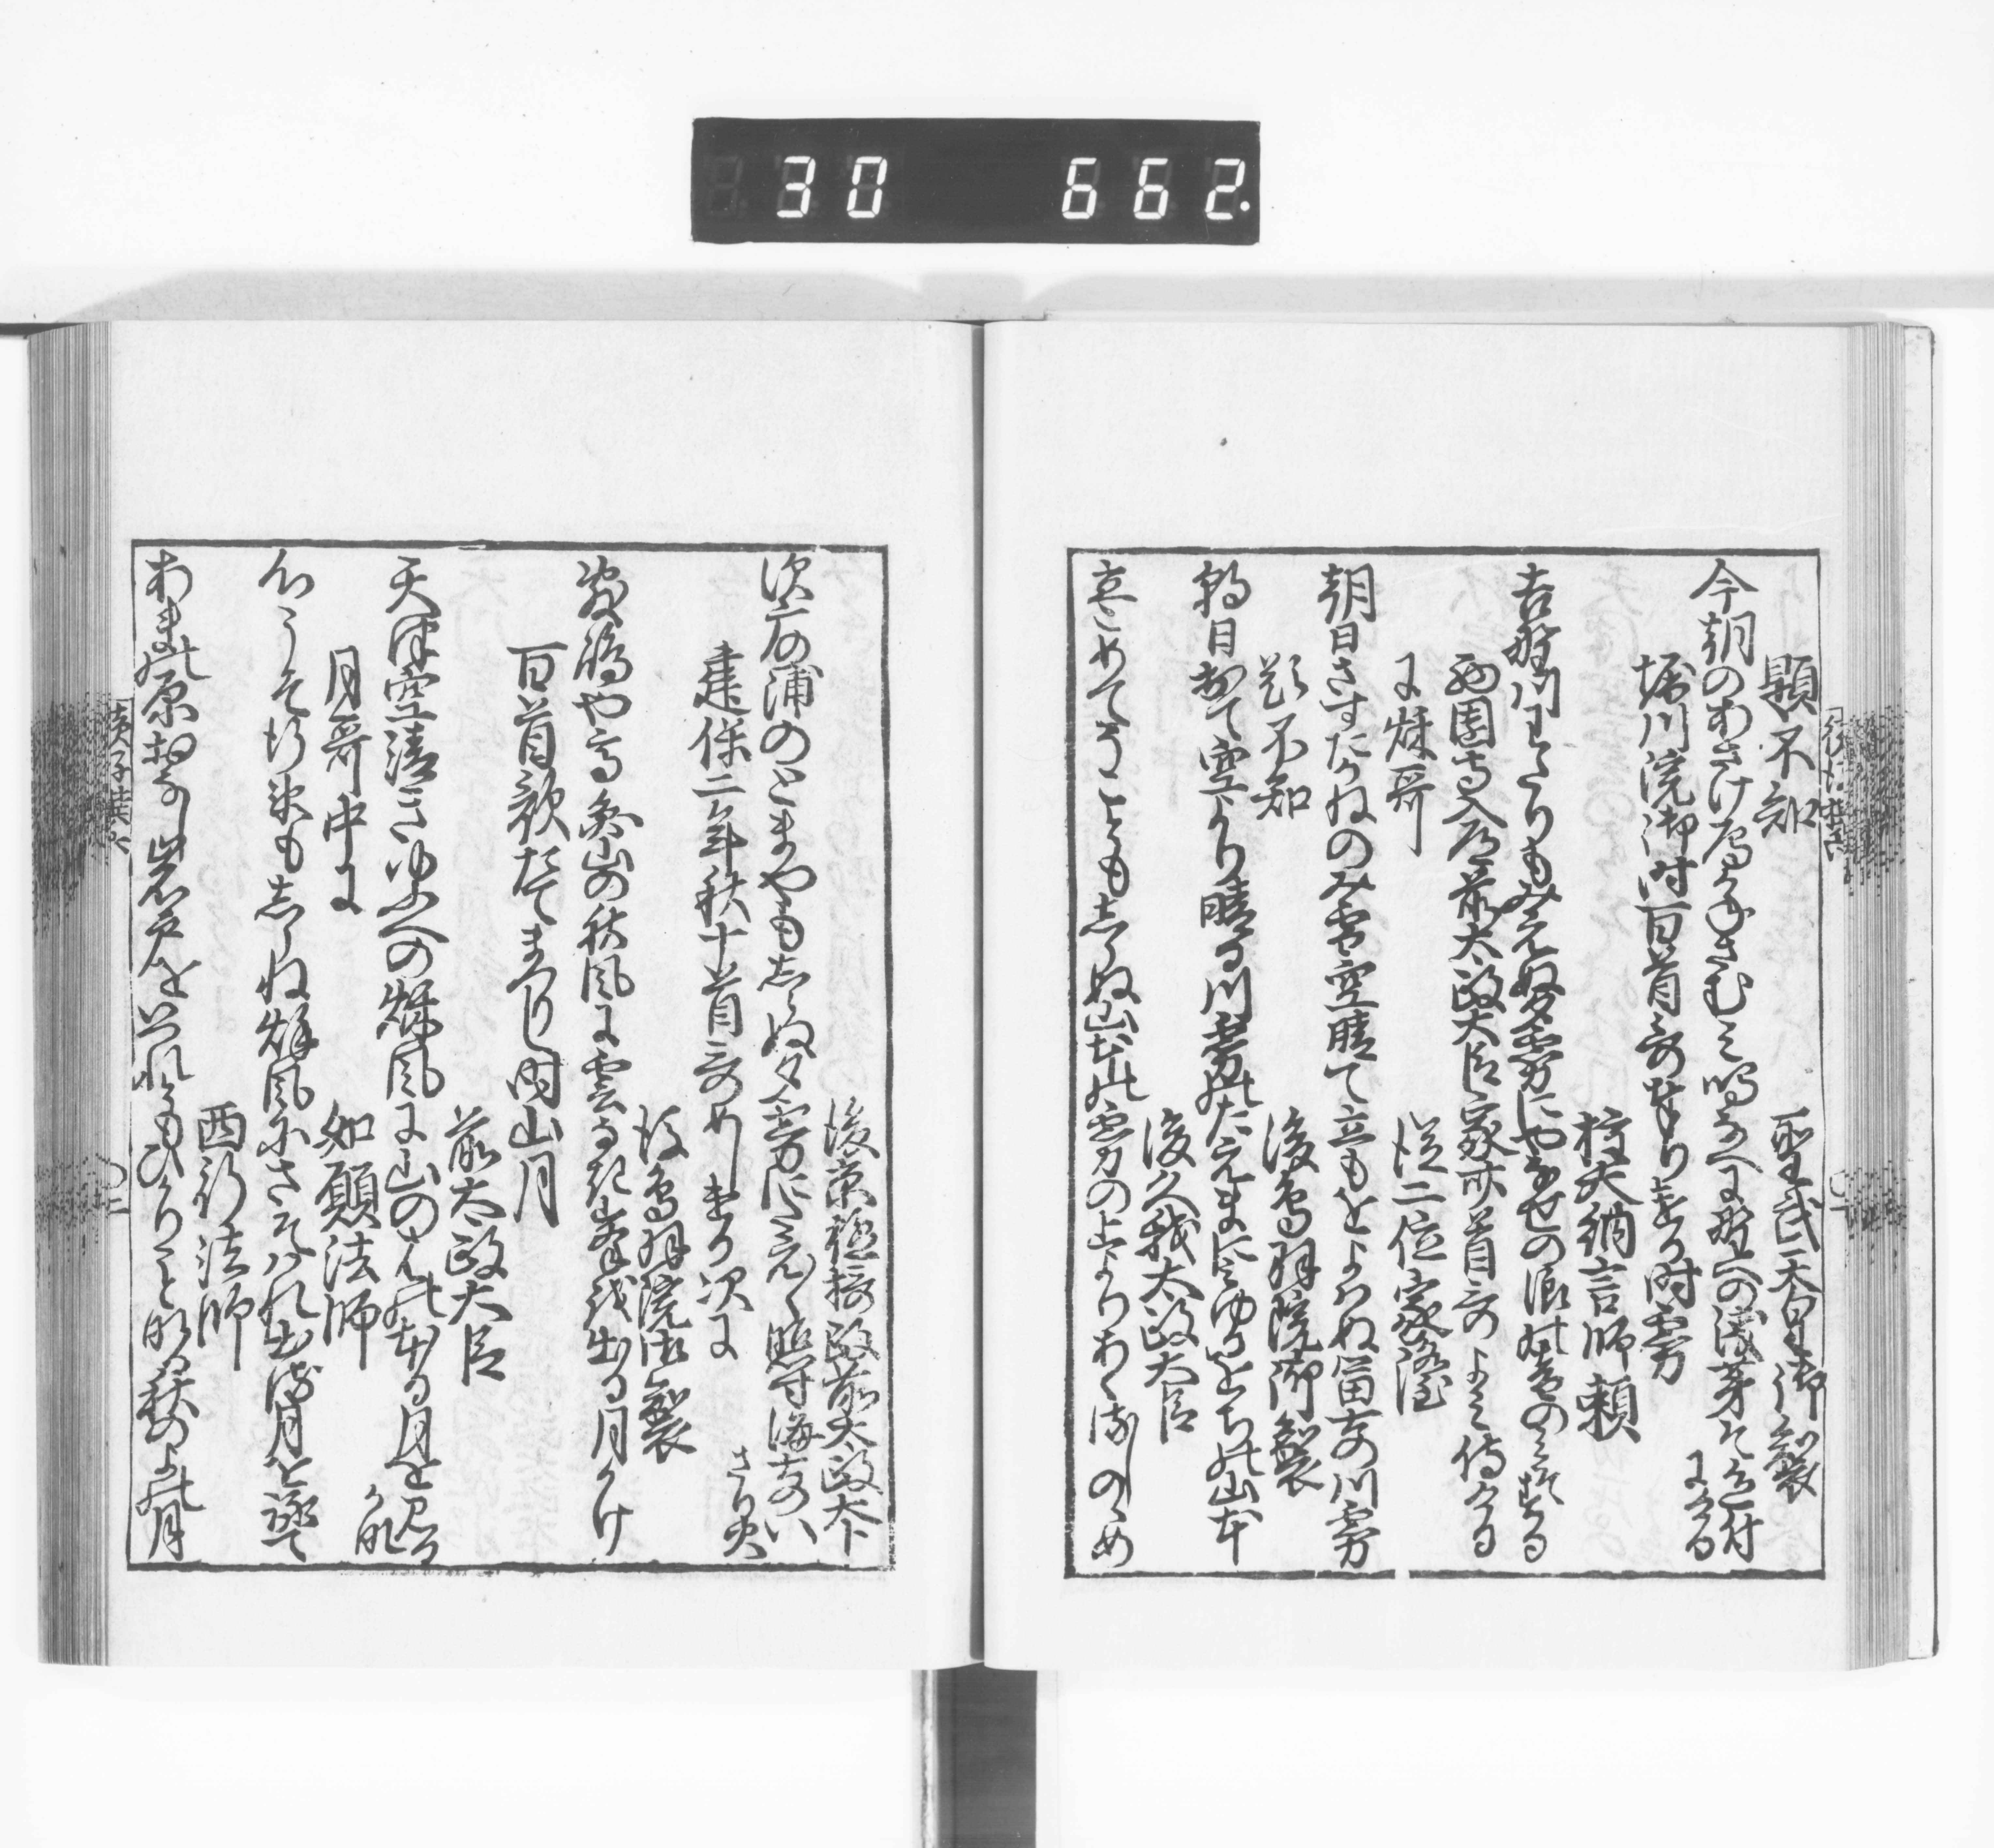 30 662
題不知
聖武天皇御製
今朝のあさけ雁かねさむみ鳴なへに野への浅茅そ色付にける
堀川院御時百首哥奉りける時霧
権大納言師頼
吉野川わたりもみえぬ夕霧にやなせの浪の音のみそする
西園寺入道前太政大臣家卅首哥よみ侍ける
に秋哥
従二位家隆
朝日さすたかねのみ雪空晴て立もをよはぬ富士の川霧
題不知
後鳥羽院御製
朝日出て空より晴る川霧のたえまにみゆるをちの山本
後久我太政大臣
立こめてそこともしらぬ山本の霧の上よりあくるしのゝめ
後京極摂政前太政大臣
須广の浦のとまやもしらぬ夕霧にたえ〳〵照すあまのいさり火
建保二年秋十首哥めしける次に
後鳥羽院御製
秋風に雲なき峯を出る月かけ
百首歌たてまつりし内山月
前太政大臣
天津空清きゆふへの秋風に山のはのほる月をみるかな
月哥中に
如願法師
心うき行末もしらね秋風にさそはれ出る月を詠て
西行法師
あまの原おなし岩戸を出れともひかりことなる秋のよの月